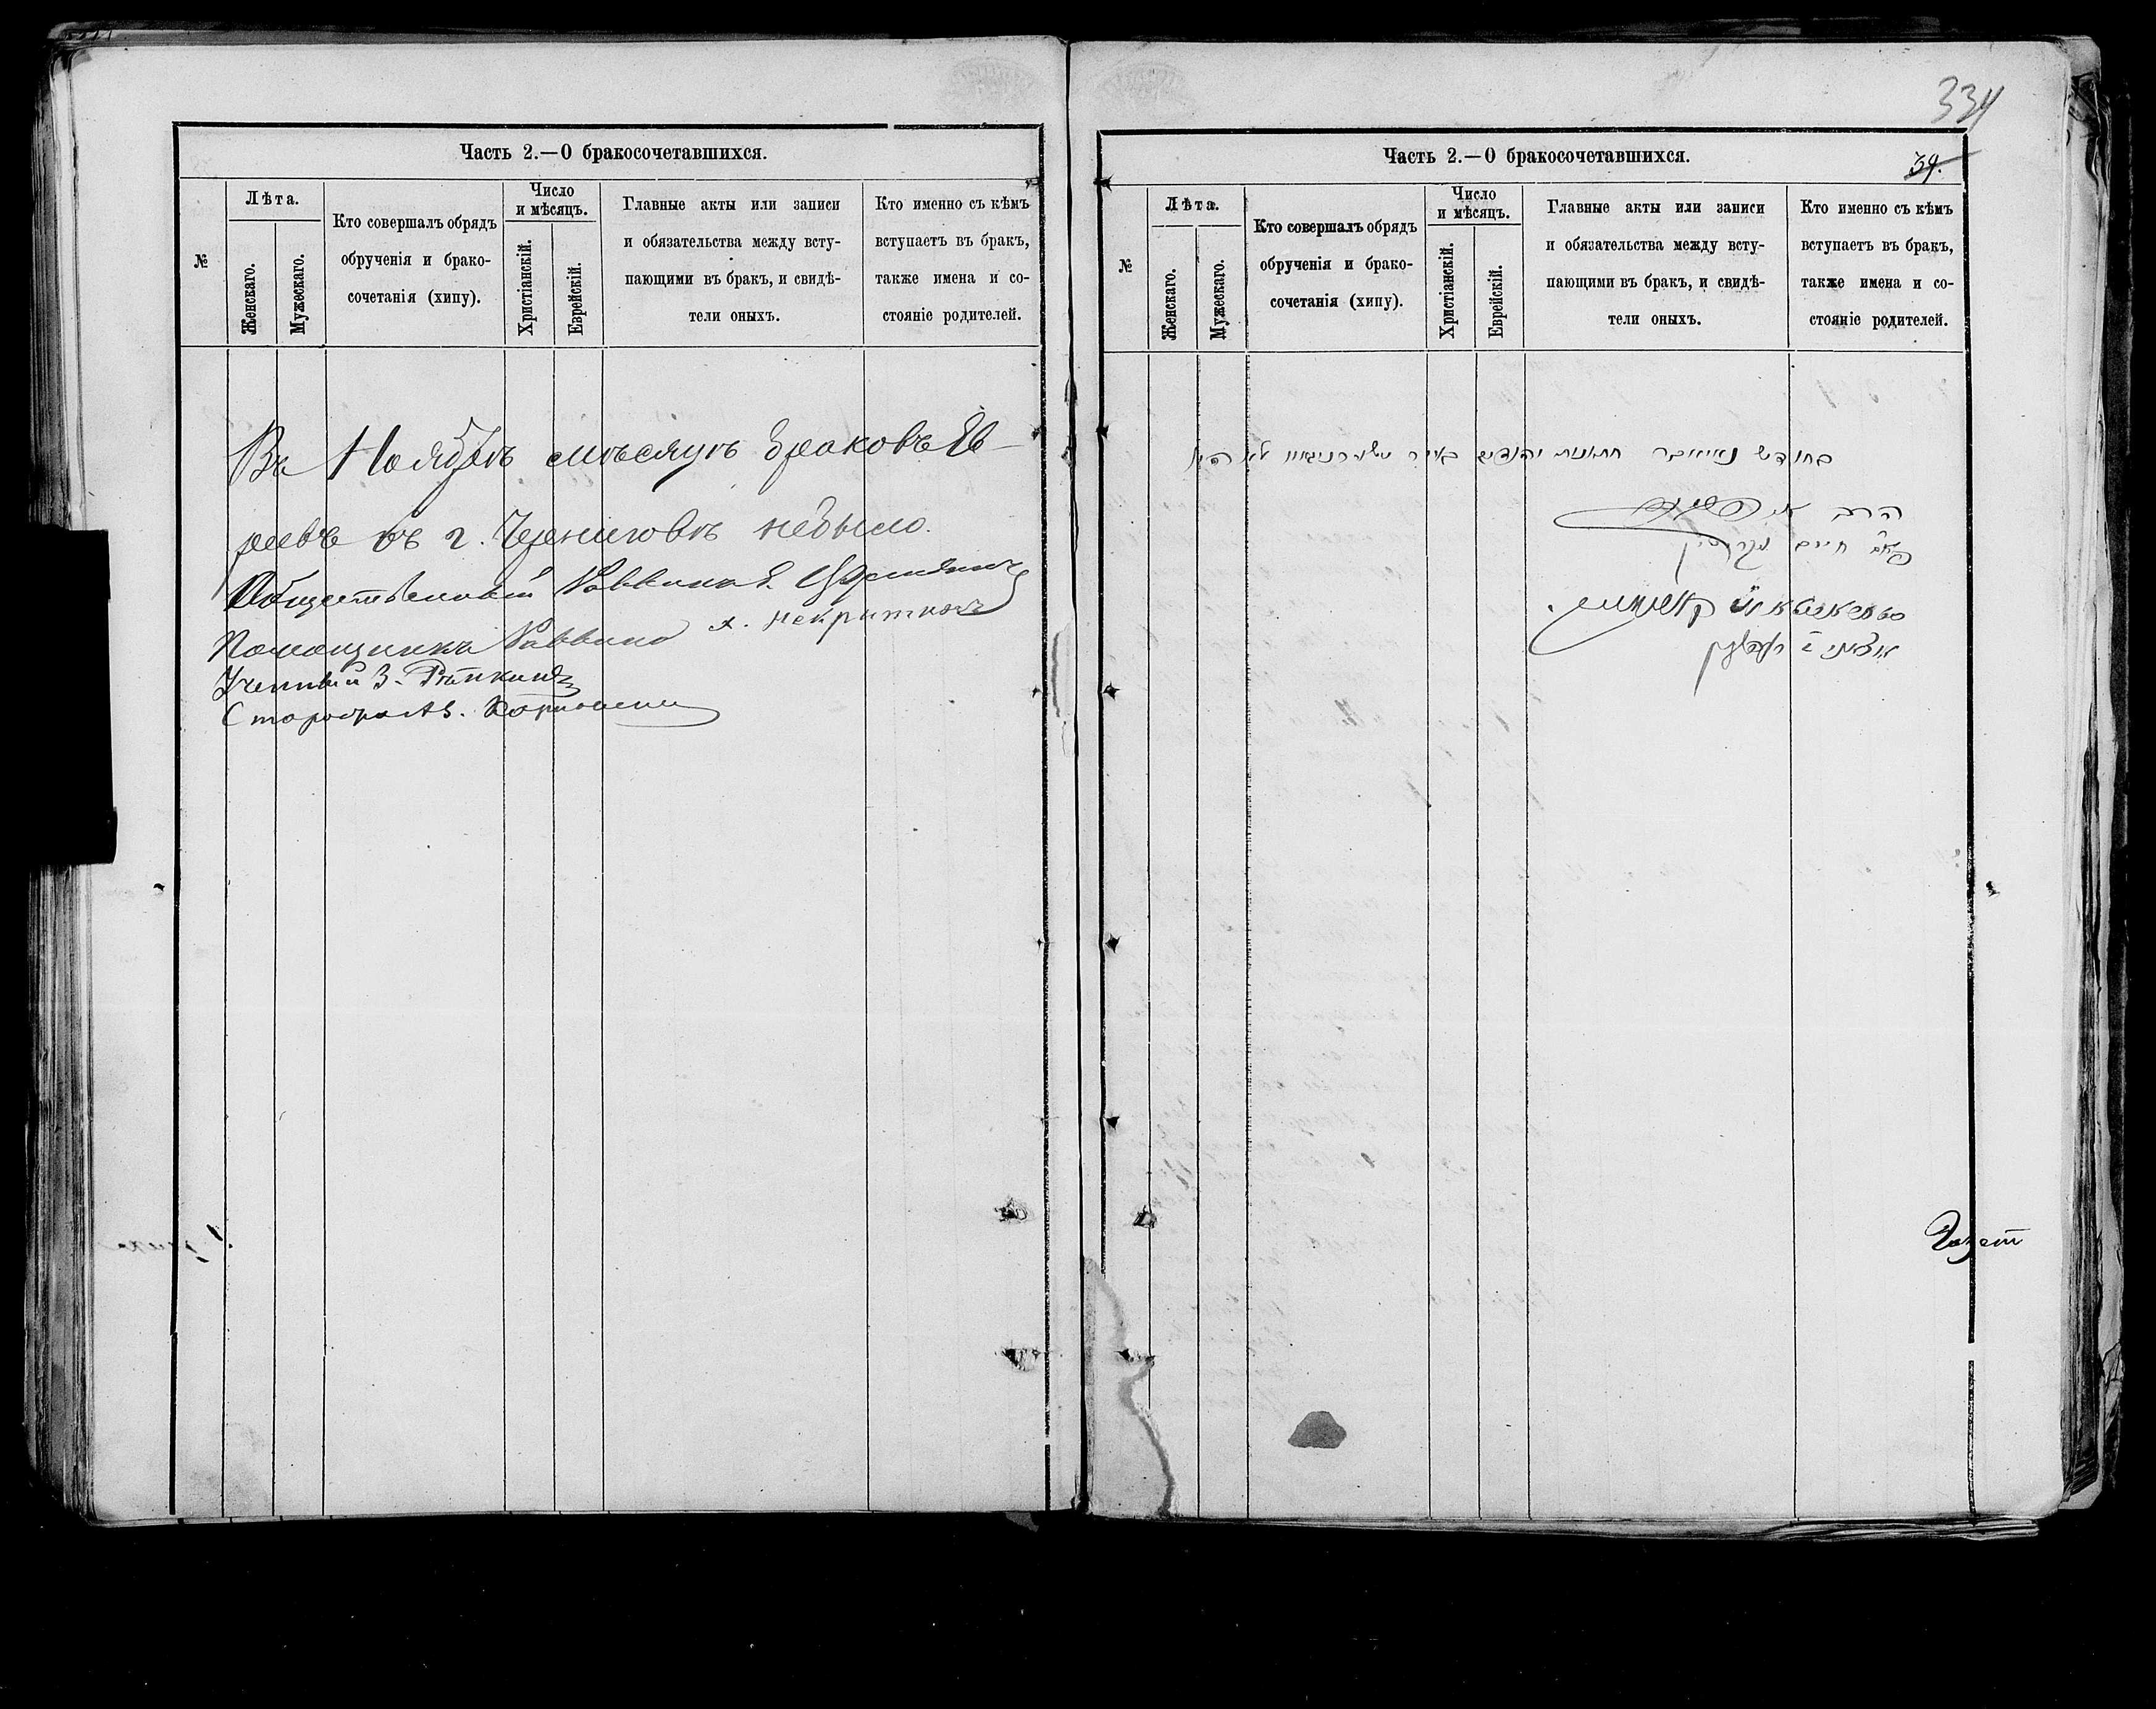 Часть 2.—О бракосочетавшихся.
№
Лѣта.
Женскаго.
Мужескаго.
Кто совершалъ обрядъ
обрученія и брако-
сочетанія (хипу).
Число
и мѣсяцъ.
Христіанскій.
Еврейскій.
Главные акты или записи
и обязательства между всту-
пающими въ бракъ, и свидѣ-
тели оныхъ.
Кто именно съ кѣмъ
вступаетъ въ бракъ,
также имена и со-
стояніе родителей.
Въ Ноябрѣ мѣсяцѣ браковъ Ев-
реевъ въ г. Черниговѣ небыло.
Общественный Раввинъ
Помощникъ Раввина х. Некритинъ
Ученный З.
Староста
334
34.
Часть 2.—О бракосочетавшихся.
№
Лѣта.
Женскаго.
Мужескаго.
Кто совершалъ обрядъ
обрученія и брако-
сочетанія (хипу).
Число
и мѣсяцъ.
Христіанскій.
Еврейскій.
Главные акты или записи
и обязательства между всту-
пающими въ бракъ, и свидѣ-
тели оныхъ.
Кто именно съ кѣмъ
вступаетъ въ бракъ,
также имена и со-
стояніе родителей.
בחודש חתונות לא היו
הרב
חיים